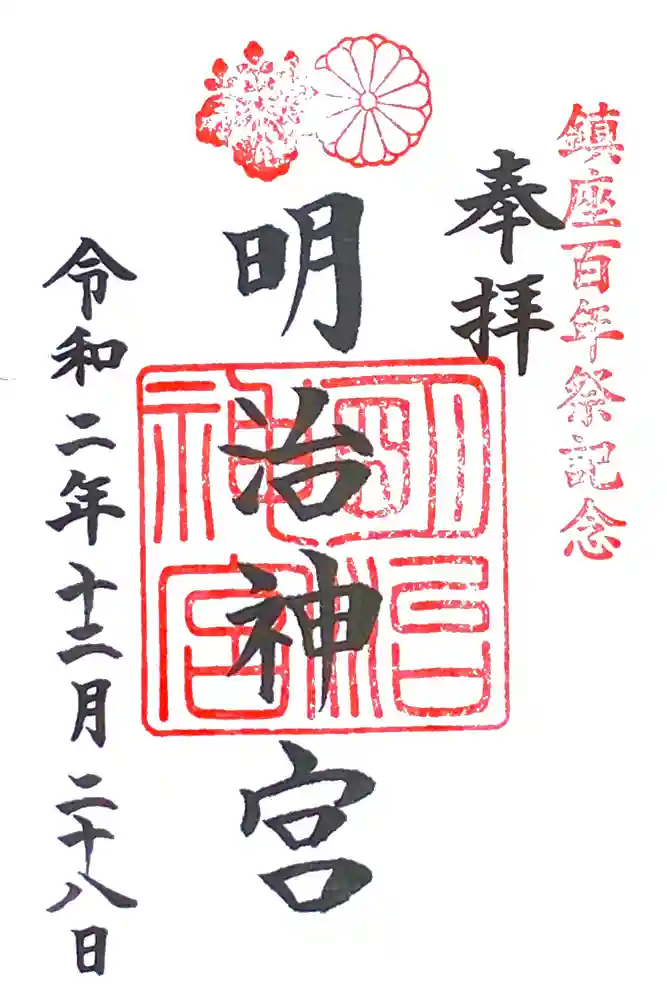 鎮座百年祭記念
奉拝
明治神宮
明治神宮
令和二年十二月二十八日